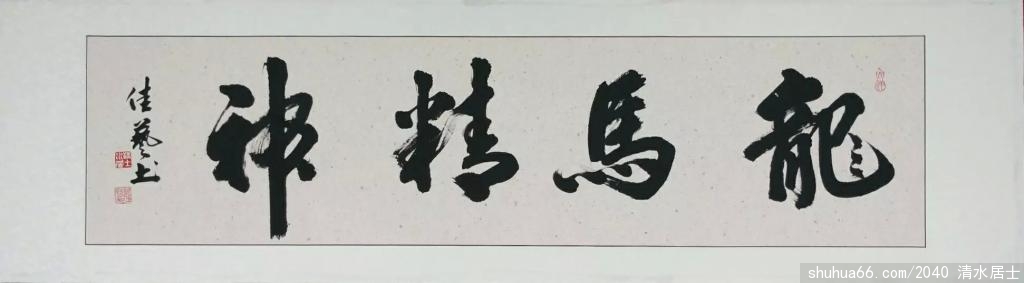 龍馬精神
佳藝书
shuhua66.com/2040 清水居士